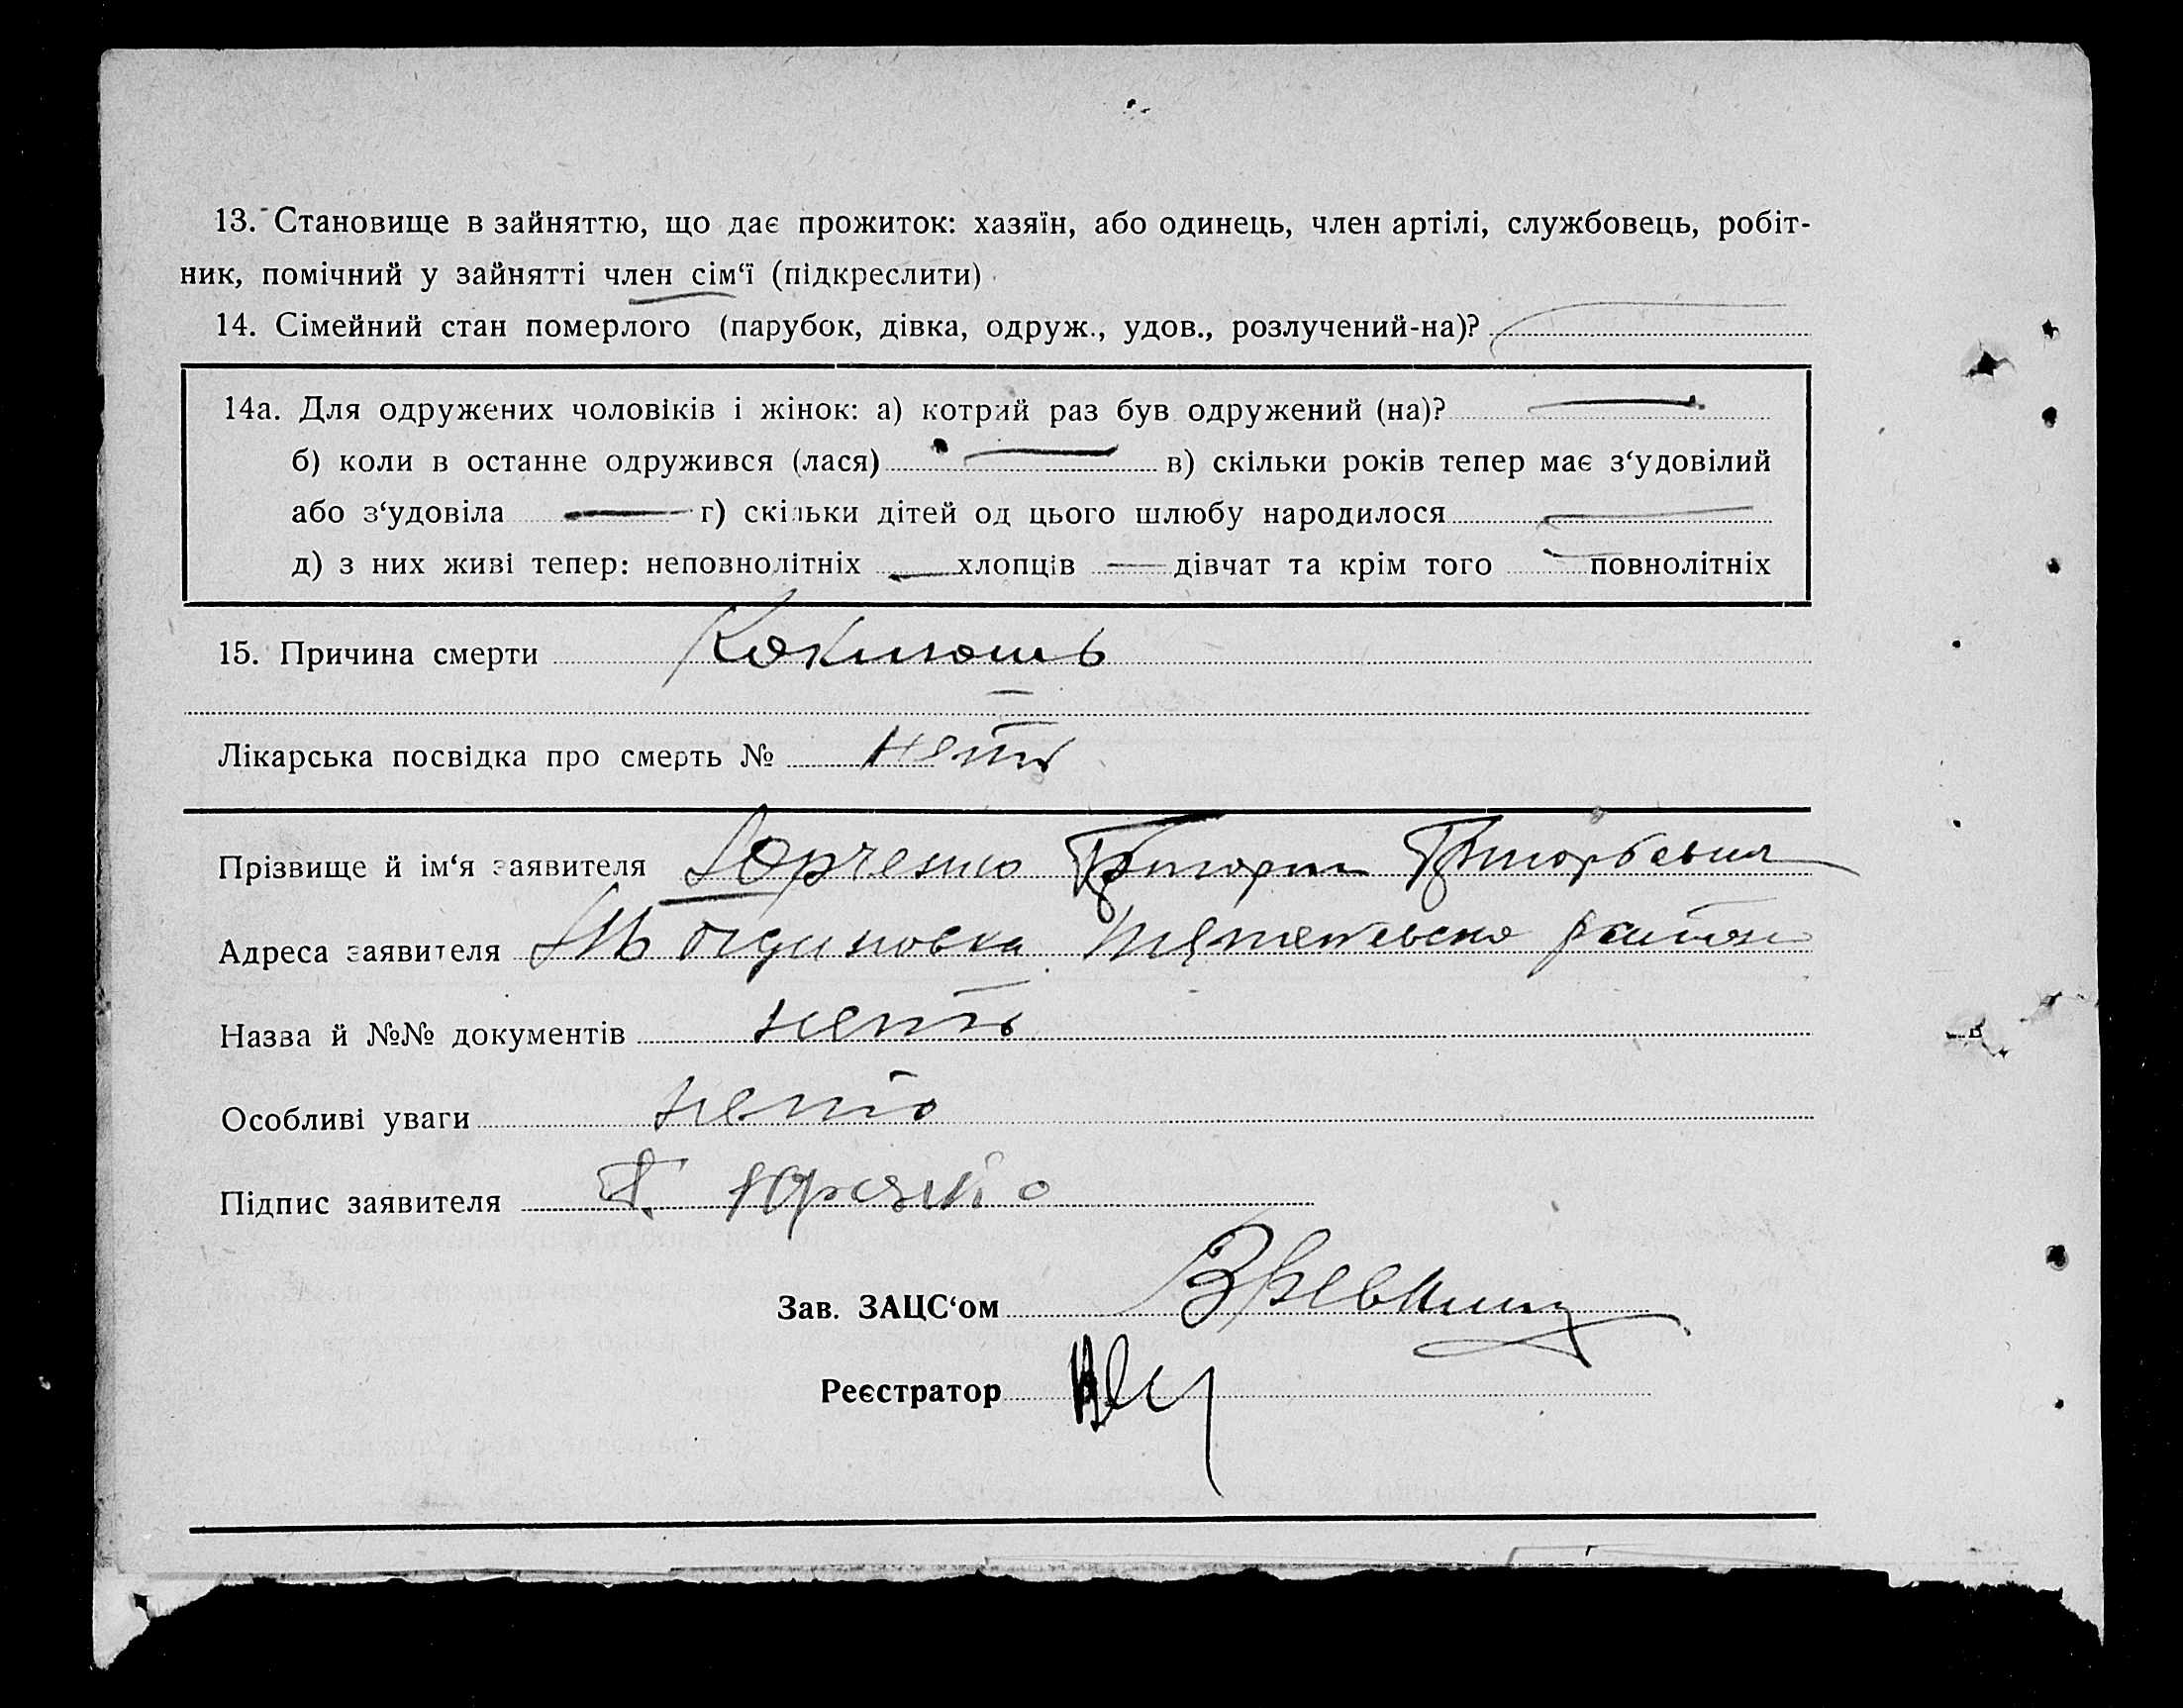 13. Становище в зайняттю, що дає прожиток: хазяїн, або одинець, член артілі, службовець, робіт-
ник, помічний у зайнятті член сім‘ї (підкреслити)
14. Сімейний стан померлого (парубок, дівка, одруж., удов., розлучений-на)?
14а. Для одружених чоловіків і жінок: а) котрий раз був одружений (на)?
б) коли в останне одружився (лася) в) скільки років тепер має з‘удовілий
або з‘удовіла г) скільки дітей од цього шлюбу народилося
д) з них живі тепер: неповнолітніх хлопців дівчат та крім того повнолітніх
15. Причина смерти Коклюшь
Лікарська посвідка про смерть № нетъ
Прізвище й ім‘я заявителя Юрченко Григори Григорьевич
Адреса заявителя район
Назва й №№ документів нетъ
Особливі уваги нетъ
Підпис заявителя Г. Юрченко
Зав. ЗАЦС‘ом
Реєстратор